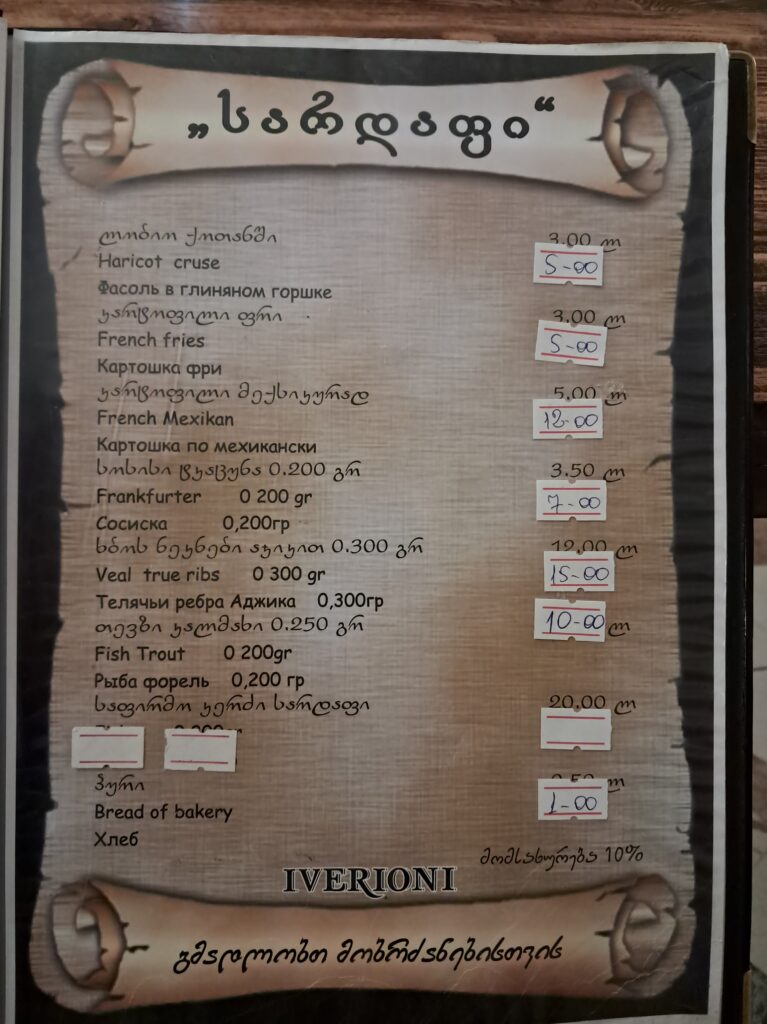 „სარდაფი“
ლობიო ქოთანში 3.00 ლ
Haricot cruse 5-00
Фасоль в глиняном горшке
კარტოფილი ფრი 3.00 ლ
French fries 5-00
Картошка фри
კარტოფილი მექსიკურად 5.00 ლ
French Mexikan 12-00
Картошка по мехикански
სოსისი ტკაცუნა 0.200 გრ 3.50 ლ
Frankfurter 0 200 gr 7-00
Сосиска 0,200гр
ხბოს ნეკნები აჯიკით 0.300 გრ 12.00 ლ
Veal true ribs 0 300 gr 15-00
Телячьи ребра Аджика 0,300гр
თევზი კალმახი 0.250 გრ 10-00 ლ
Fish Trout 0 200gr
Рыба форель 0,200 гр
საფირმო კერძი სარდაფი 20.00 ლ
პური ლ
Bread of bakery 1-00
Хлеб
მომსახურება 10%
IVERIONI
გმადლობთ მობრძანებისთვის